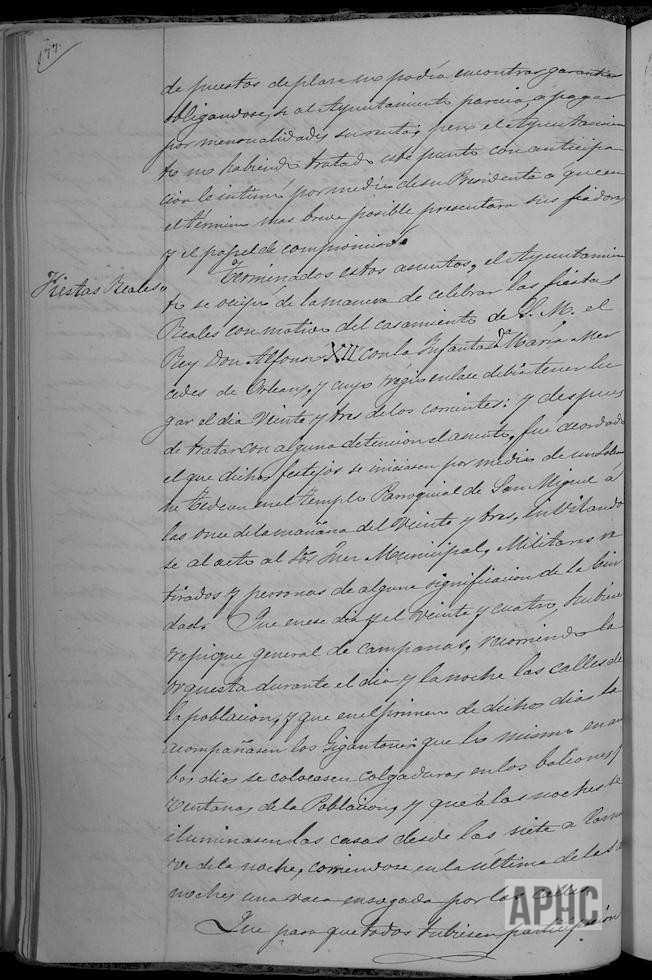 177.
de puestos de plaza no podía encontrar garantia
obligandose, si al Ayuntamiento parecia, a pagar
por mensualidades su renta; pero el Ayuntamien
to no habiendo tratado este punto con anticipa
cion le intimó por medio de su Presidente a que en
el término mas breve posible presentara sus fiadores
y el papel de compromiso.
Fiestas Reales
Terminados estos asuntos, el Ayuntamien
to se ocupó de la manera de celebrar las fiestas
Reales con motivo del casamiento de S. M. el
Rey Don Alfonso XII con la Infanta Dª Maria Mer
cedes de Orleans, y cuyo regio enlace debia tener lu
gar el dia veinte y tres de los corrientes: y despues
de tratar con alguna detencion el asunto, fue acordado
el que dichos festejos se iniciasen por medio de un solem
ne Tedeum en el templo Parroquial de San Miguel á
las once de la mañana del veinte y tres, invitando
se al acto al Sor Juez Municipal, Militares re
tirados y personas de alguna significacion de la Ciu
dad. Que en ese dia y el veinte y cuatro, hubiere
repique general de campanas, recorriendo la
orquesta durante el dia y la noche las calles de
la poblacion, y que en el primero de dichos dias la
acompañasen los Gigantones: que lo mismo en am
bos dias se colocasen colgaduras en los balcones y
ventanas de la Poblacion, y que á las noches se
iluminasen las casas desde las siete a las nue
ve de la noche, corriendose en la última de las
noches una vaca ensogada por las calles.
Que para que todos tubiesen participacion
APHC